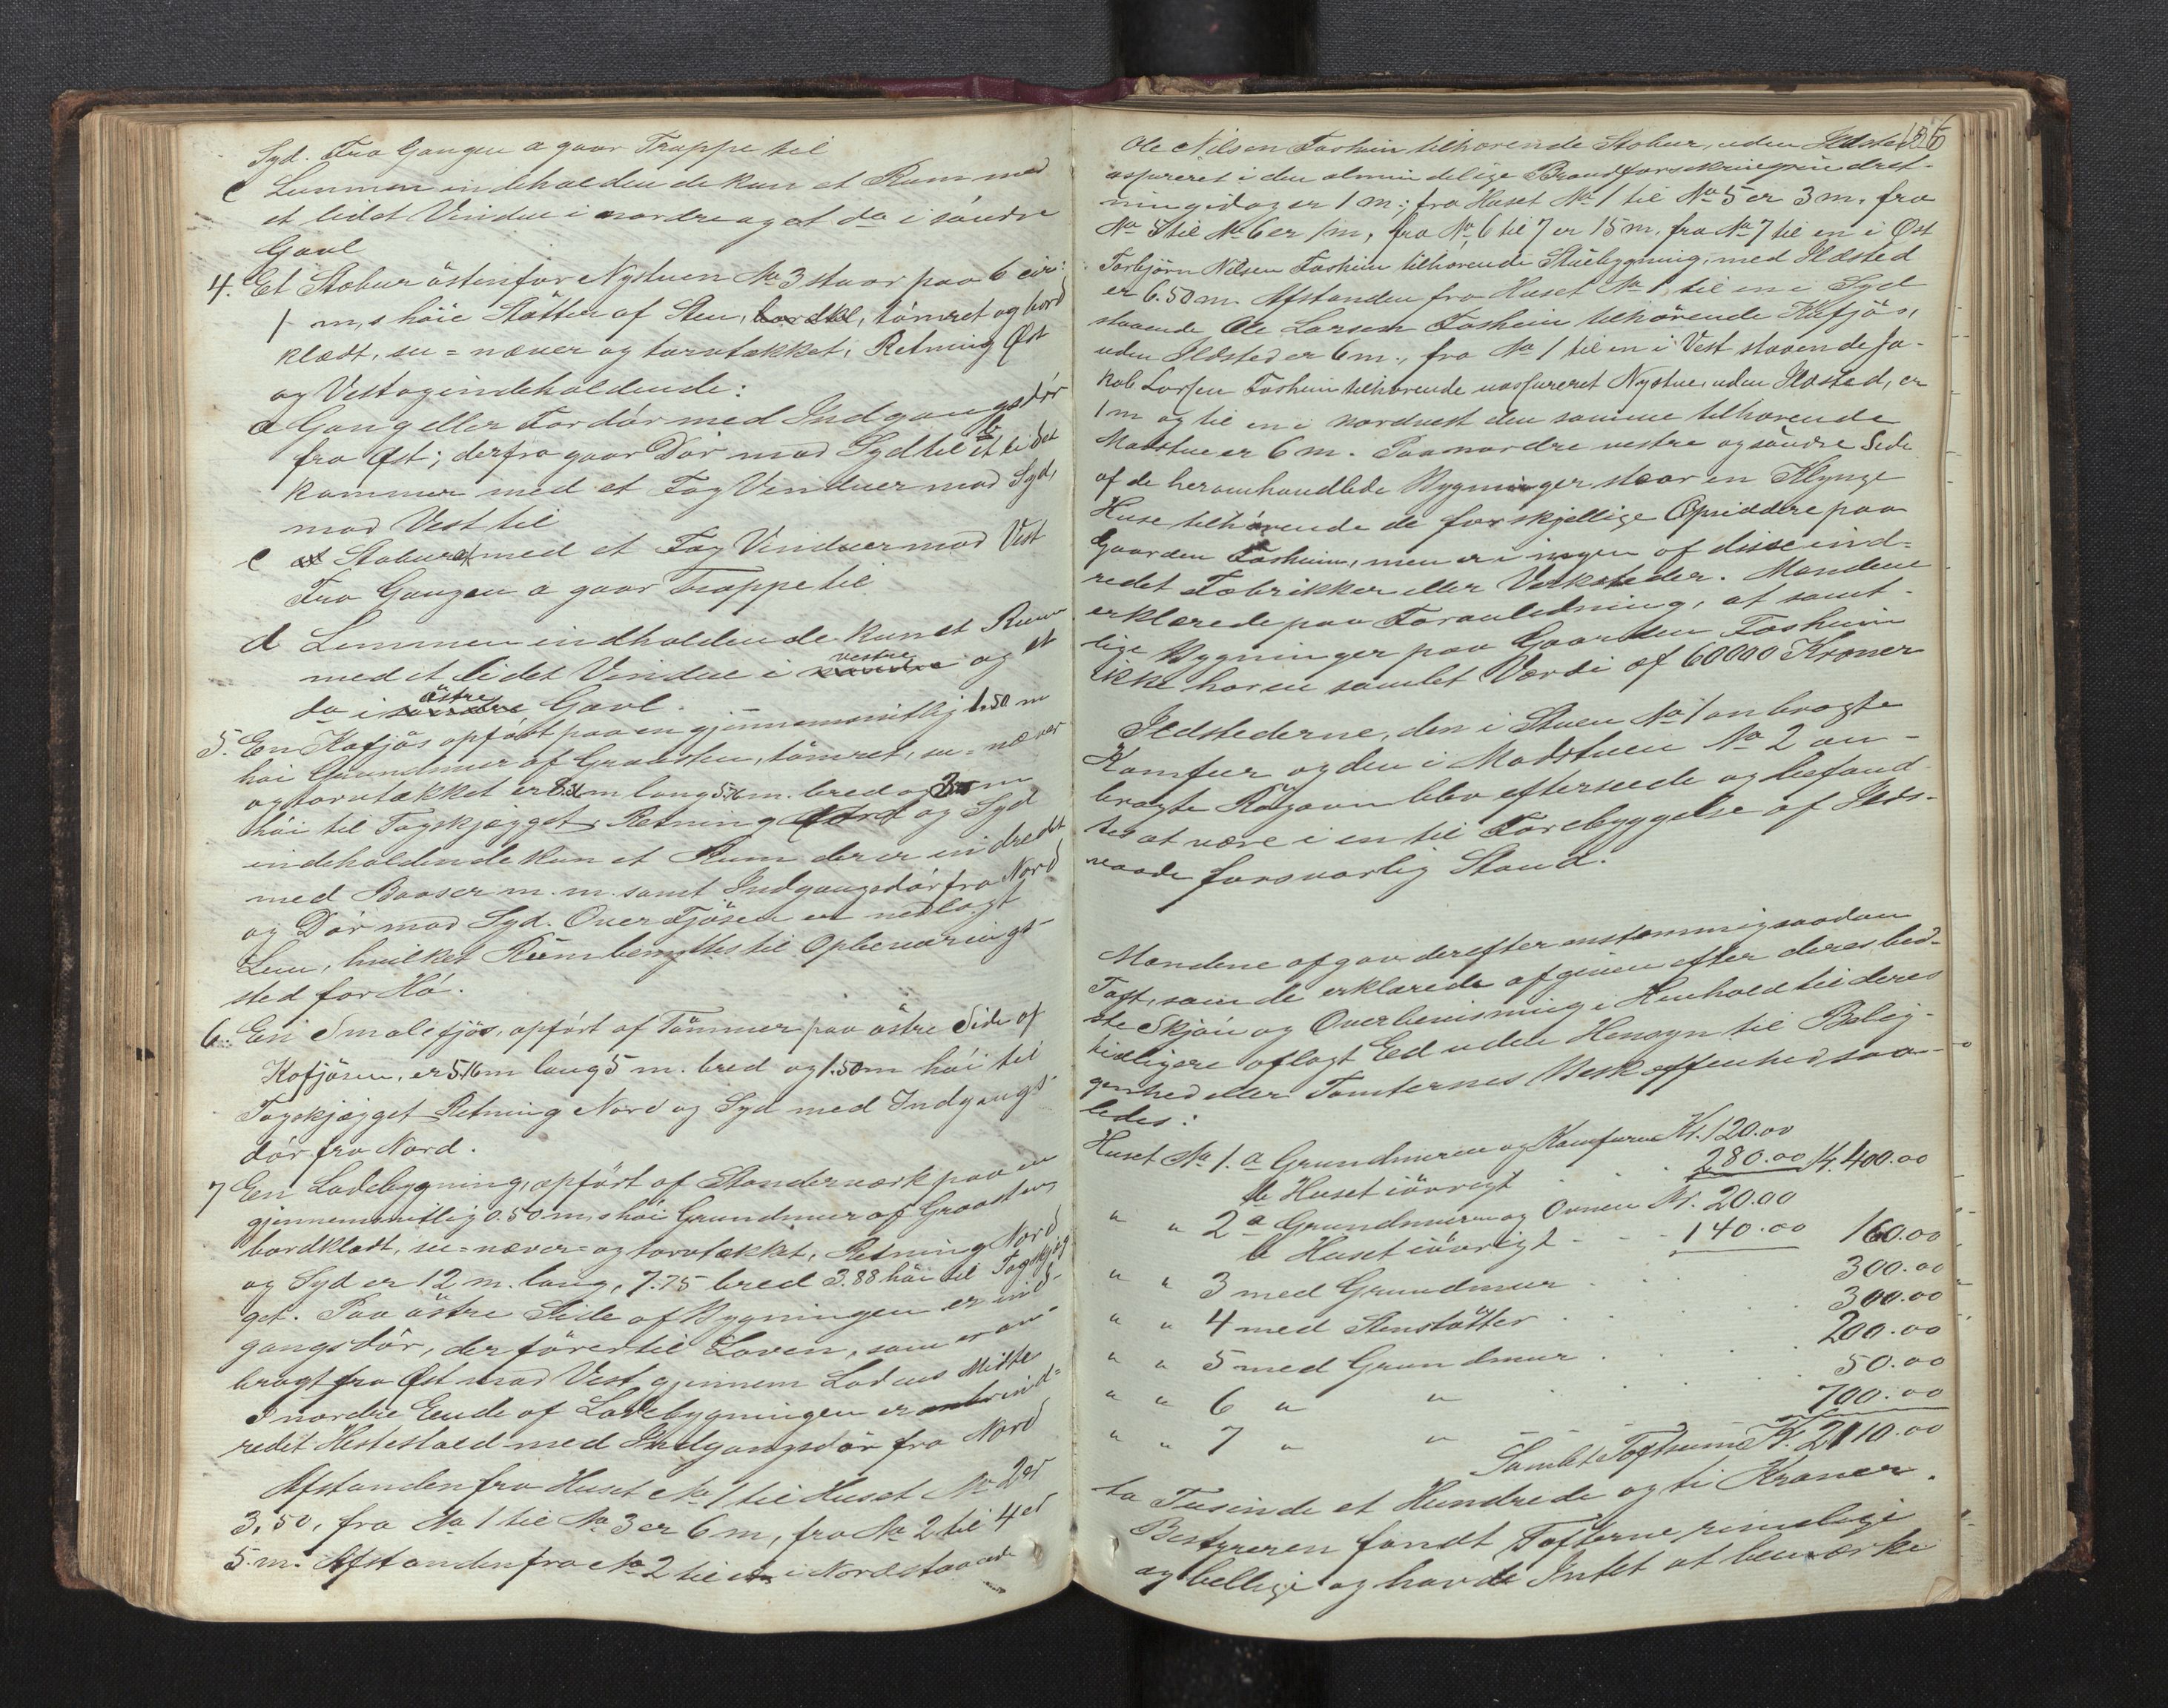 Syd. Fra Gangen a gaar Trappe til
c Lemmen indeholdende kun et Rum med
et lidet Vindue i nordre og et do i söndre
Gavl
4. Et Stabur östenfor Nystuen No 3 staar paa 6 cir:
1 m,s höie Stötter af Sten, bordkl, tömret og bord
klædt, su = næver og torvtækket, Retning Øst
og Vest og indeholdende:
a Gang eller Fordör med Indgangsdör
fra Øst; derfra gaar Dör mod Syd til b et lidet
kammer med et Fag Vinduer mod Syd,
mod Vest til
c et Stabur med et Fag Vinduer mod Vest
Fra Gangen a gaar Trappe til
d Lemmen indholdende kun et Rum
med et lidet Vindue i nordre vestre og et
do i söndre östre Gavl.
5. En Kofjös opfört paa en gjennemsnitlig 1.50 m
höi Grundmur af Graasten, tömret, su = næver
og torvtækket er 8. m lang 5. m. bred og 3 m
höi til Tagskjægget, Retning Nord og Syd
indeholdende kun et Rum der er indredet
med Baaser m. m. samt Indgangsdör fra Nord
og Dör mod Syd. Over Fjösen er nedlagt
Lem, hvilket Rum benyttes til Opbevarings-
sted for Hö.
6. En Smalefjös, opfört af Tömmer paa östre Side af
Kofjösen, er 5.16m lang 5 m. bred og 1.50m höi til
Tagskjægget Retning Nord og Syd med Indgangs-
dör fra Nord.
7 En Ladebygning, opfört af Stenderværk paa en
gjennemsnitlig 0.50 m,s höi Grundmur af Graasten,
bordklædt, su = næver = og torvtækket, Retning Nord
og Syd er 12 m. lang, 7.75 bred 3.88 höi til Tagskjæg
get. Paa östre Side af Bygningen er ind-
gangsdör, der förer til Laven, som er an-
bragt fra Øst mod Vest gjennem Ladens Midte
I nordre Ende af Ladebygningen er ind=
redet Hestestald med Indgangsdör fra Nord
Afstanden fra Huset No 1 til Huset No 2 er
3,50, fra No 1 til No 3 er 6 m, fra No 2 til 4 er
5 m. Afstanden fra No 2 til en i Nord staaende
186
Ole Nilsen Fosheim tilhörende Stabur, uden Ildsted
asfureret i den almindelige Brandforsikringsindret-
ning idag er 1 m.; fra Huset No 1 til No 5 er 3 m, fra
No 5 til No 6 er 1 m, fra No 6 til 7 er 15 m, fra No 7 til en i Øst
Torbjörn Nilsen Fosheim tilhörende Stuebygning, med Ildsted
er 6.50 m. Afstanden fra Huset No 1 til en i Syd
staaende Ole Larsen Fosheim tilhörende Kofjös,
uden Ildsted er 6 m., fra No 1 til en i Vest staaende Ja-
kob Larsen Fosheim tilhörende uasfureret Nystue, uden Ildsted, er
1 m og til en i nordvest den samme tilhörende
Madstue er 6 m. Paa nordre vestre og söndre Side
af de heromhandlede Bygninger staar en Klynge
Huse tilhörende de forskjellige Opsiddere paa
Gaarden Fosheim, men er i ingen af disse ind=
redet Fabrikker eller Verksteder. Mændene
erklærede paa Foranledning, at samt-
lige Bygninger paa Gaarden Fosheim
ikke har en samlet Værdi af 60000 Kroner
Ildstederne, den i Stuen No 1 anbragte
Komfur og den i Madstuen No 2 an-
bragte Rögovn blev efterseede og befand-
tes at være i en til Forebyggelse af Ilds-
vaade forsvarlig Stand.
Mændene afgav derefter enstemmig saadan
Taxt, som de erklærede afgiven efter deres bed-
ste Skjön og Overbevisning i Henhold til deres
tidligere aflagt Eed uden Hensyn til Belig-
genhed eller Tomternes Beskaffenhed saa-
ledes:
Huset No 1. a Grundmuren og Komfuren Kr. 120.00
b Huset iövrigt . . 280.00 Kr. 400.00
" " 2 a Grundmuren og Ovnen Kr. 20.00
b Huset iövrigt - - - 140.00 160.00
" " 3 med Grundmur . . . 300.00
" " 4 med Stenstötter . . . 300.00
" " 5 med Grundmur . . . 200.00
" " 6 " " . . . 50.00
" " 7 " " . . . 700.00
Samlet Taxtsum Kr. 2110.00
to Tusinde et Hundrede og ti Kroner.
Bestyreren fandt Taxterne rimelige
og billige og havde Intet at bemærke